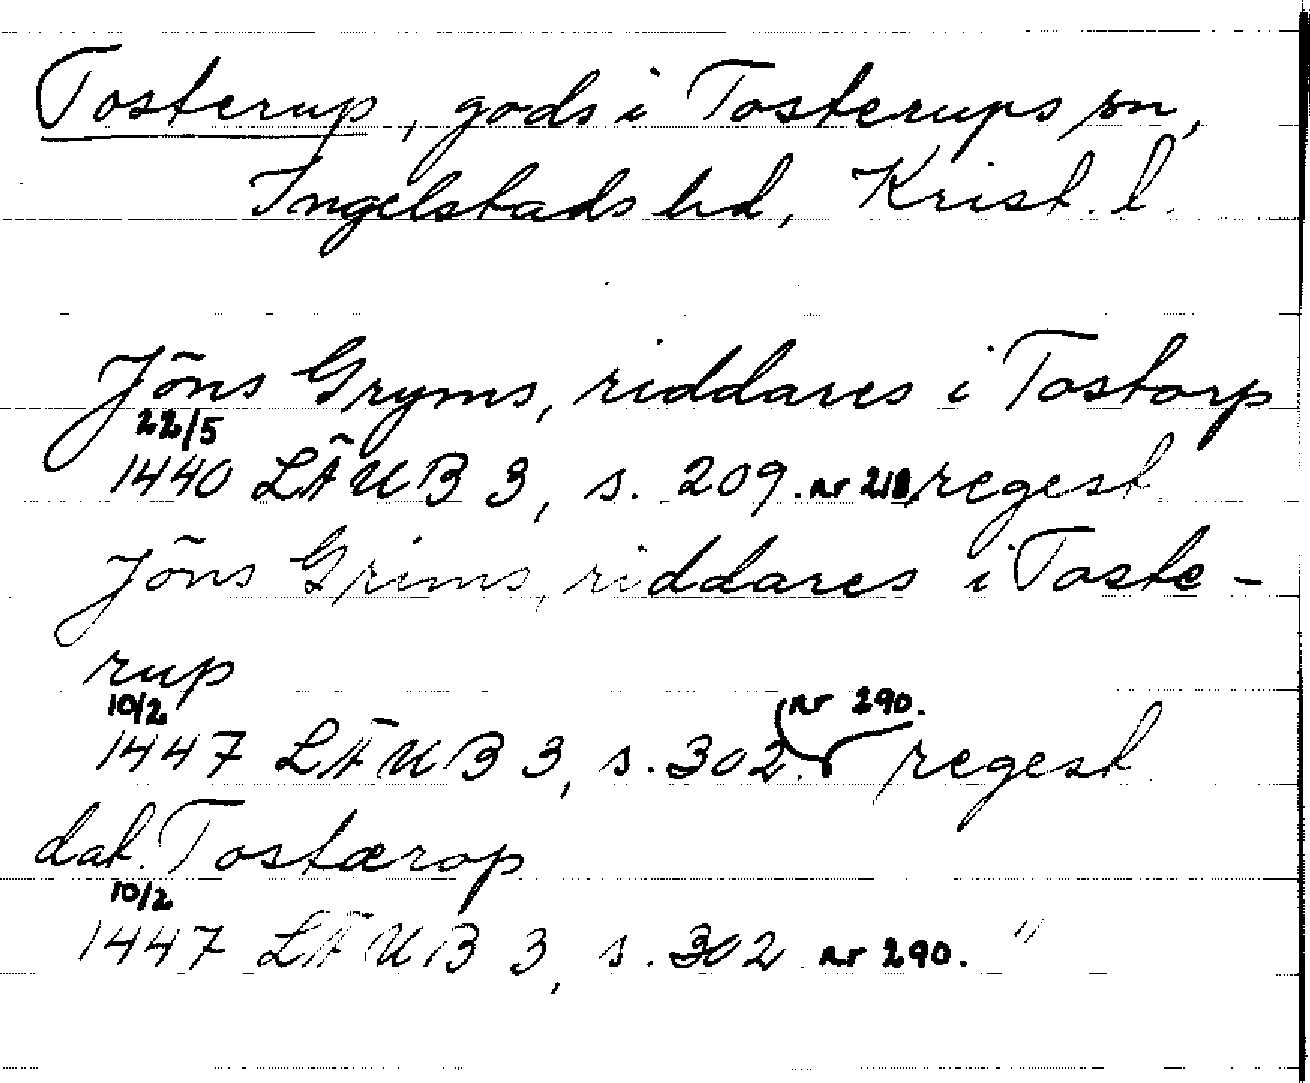 Tosterup, gods i Tosterups sn,
Ingelstads hd, Krist. l.
Jöns Gryms, riddares i Tostorp
22/5
1440 LÄUB 3, s. 209. nr 218 regest
Jöns Grims, riddares i Toste-
rup
10/2 nr 290.
1447 LÄUB 3, s. 302. regest
dat. Tostærop
10/2
1447 LÄUB 3, s. 302 nr 290. "